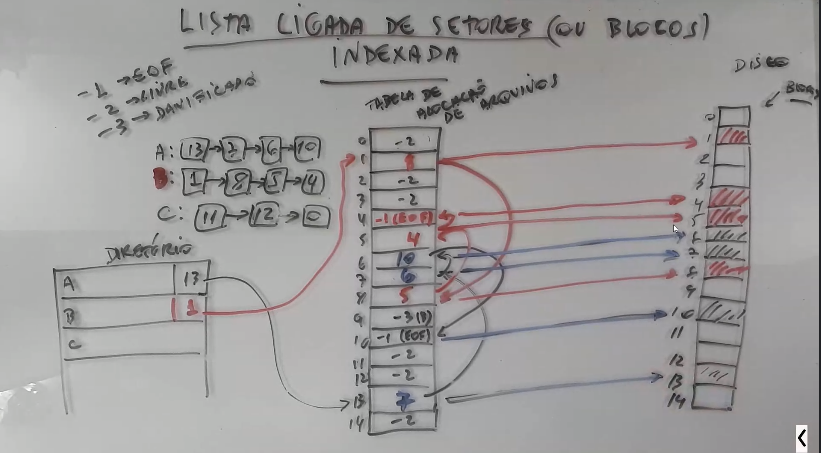 LISTA LIGADA DE SETORES (OU BLOCOS)
INDEXADA
-1 → EOF
-2 → LIVRE
-3 → DANIFICADO
A: 13 → 7 → 6 → 10
B: 1 → 8 → 5 → 4
C: 11 → 12 → 0
DIRETÓRIO
A 13
B 1
C
TABELA DE
ALOCAÇÃO
DE ARQUIVOS
0 -2
1 8
2 -2
3 -2
4 -1 (EOF)
5 4
6 10
7 6
8 5
9 -3 (D)
10 -1 (EOF)
11 -2
12 -2
13 7
14 -2
DISCO
0
1
2
3
4
5
6
7
8
9
10
11
12
13
14